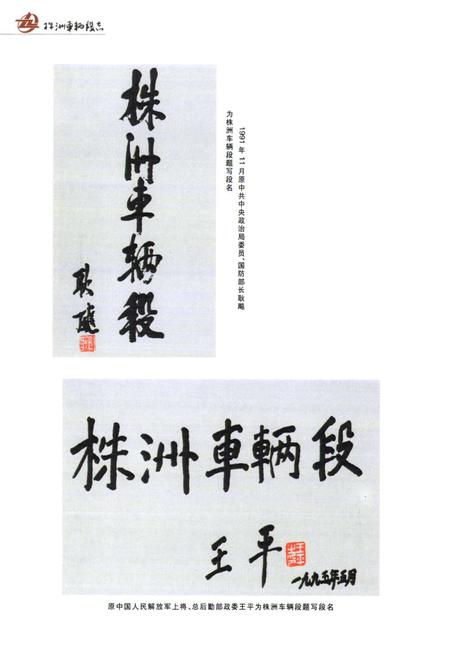 株洲車辆段志
株洲車辆段
耿飚
1991年11月原中共中央政治局委员、国防部长耿飚
为株洲车辆段题写段名
株洲車辆段
王平
一九九五年五月
原中国人民解放军上将、总后勤部政委王平为株洲车辆段题写段名